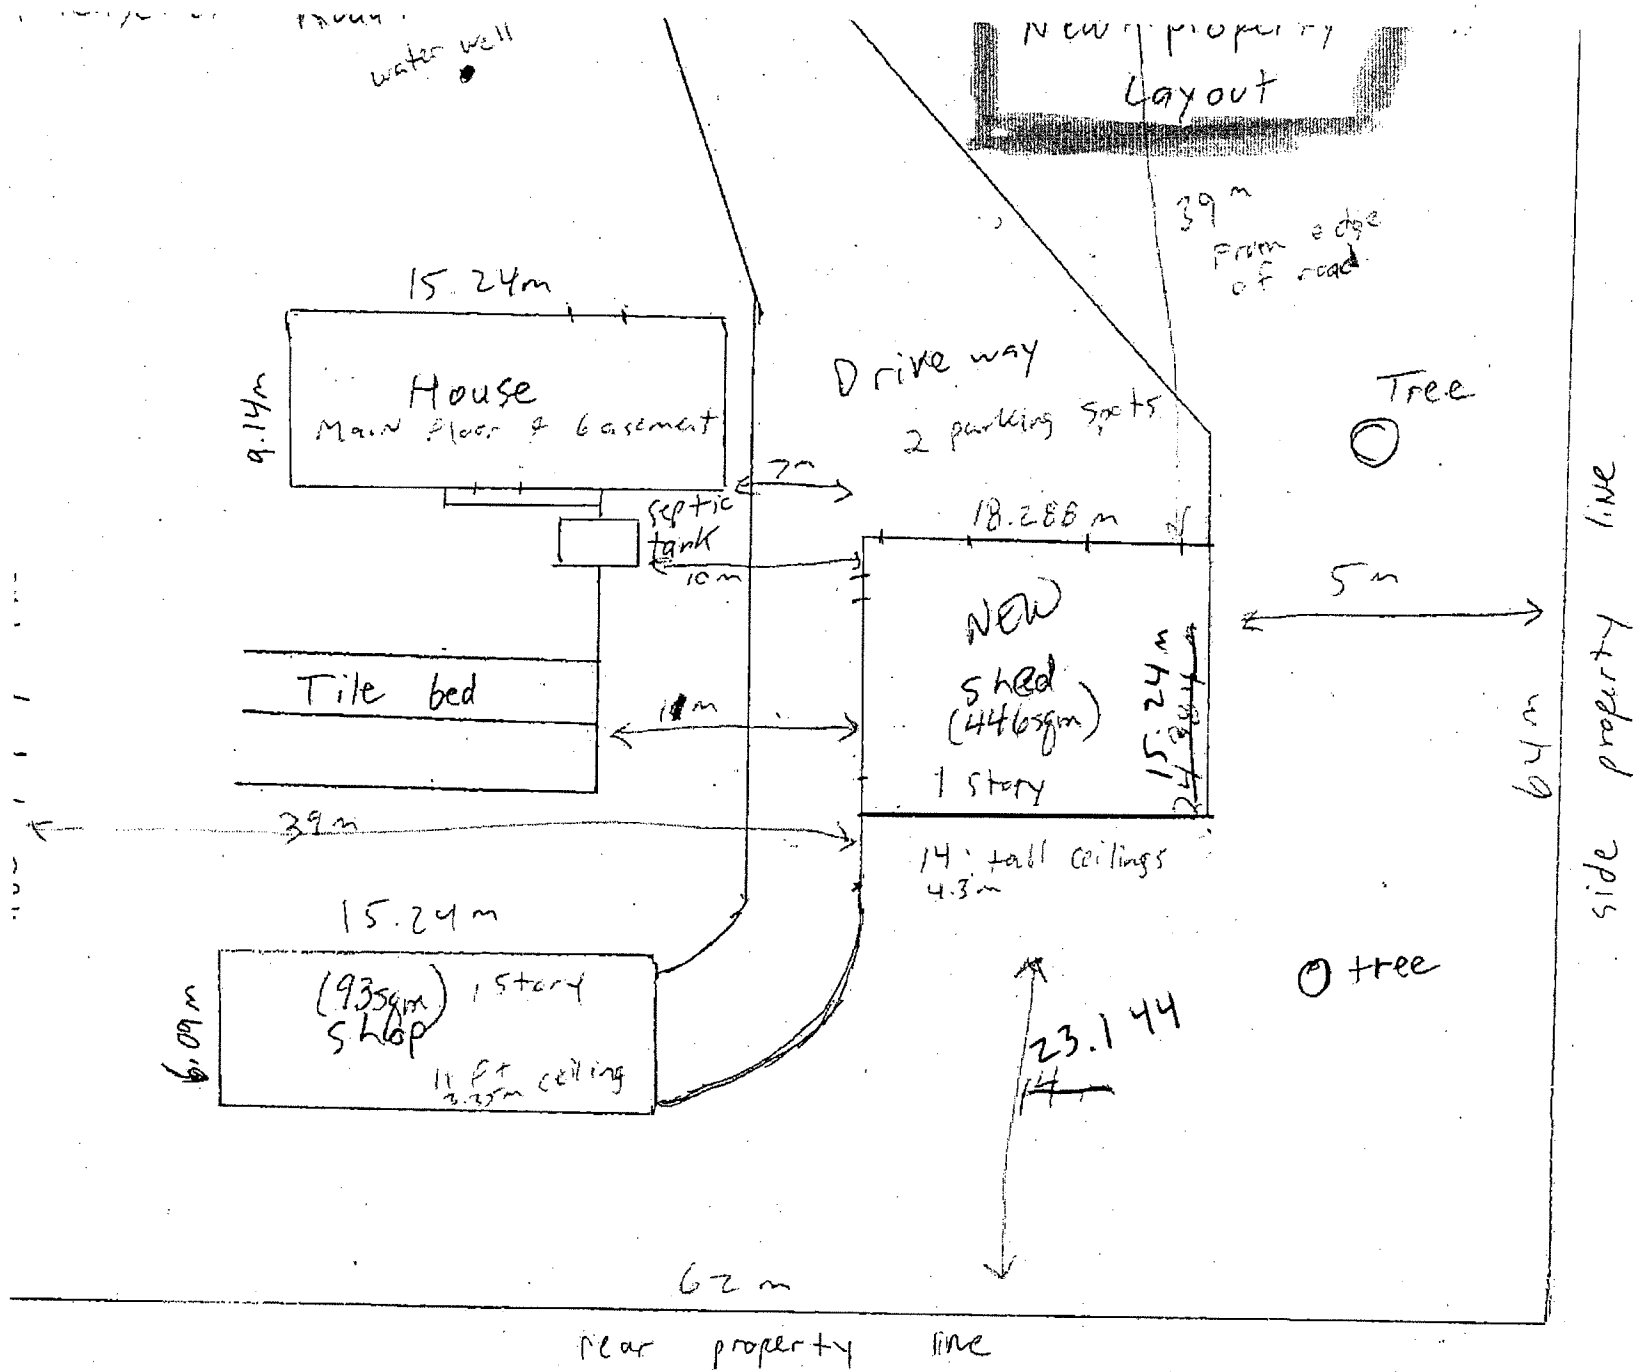 water well
New property
Layout
39 m
From edge
of road
15.24m
9.14m
House
Main floor & basement
Drive way
2 parking spots
Tree
7m
septic
tank
10m
18.288 m
5 m
NEW
shed
(446sqm)
1 story
15.24 m
24.384 m
Tile bed
m
39m
14' tall ceilings
4.3m
side property line
64 m
15.24m
6.09m
(93sqm) 1 story
shop
11 ft ceiling
3.35m
tree
23.144
14
62 m
rear property line